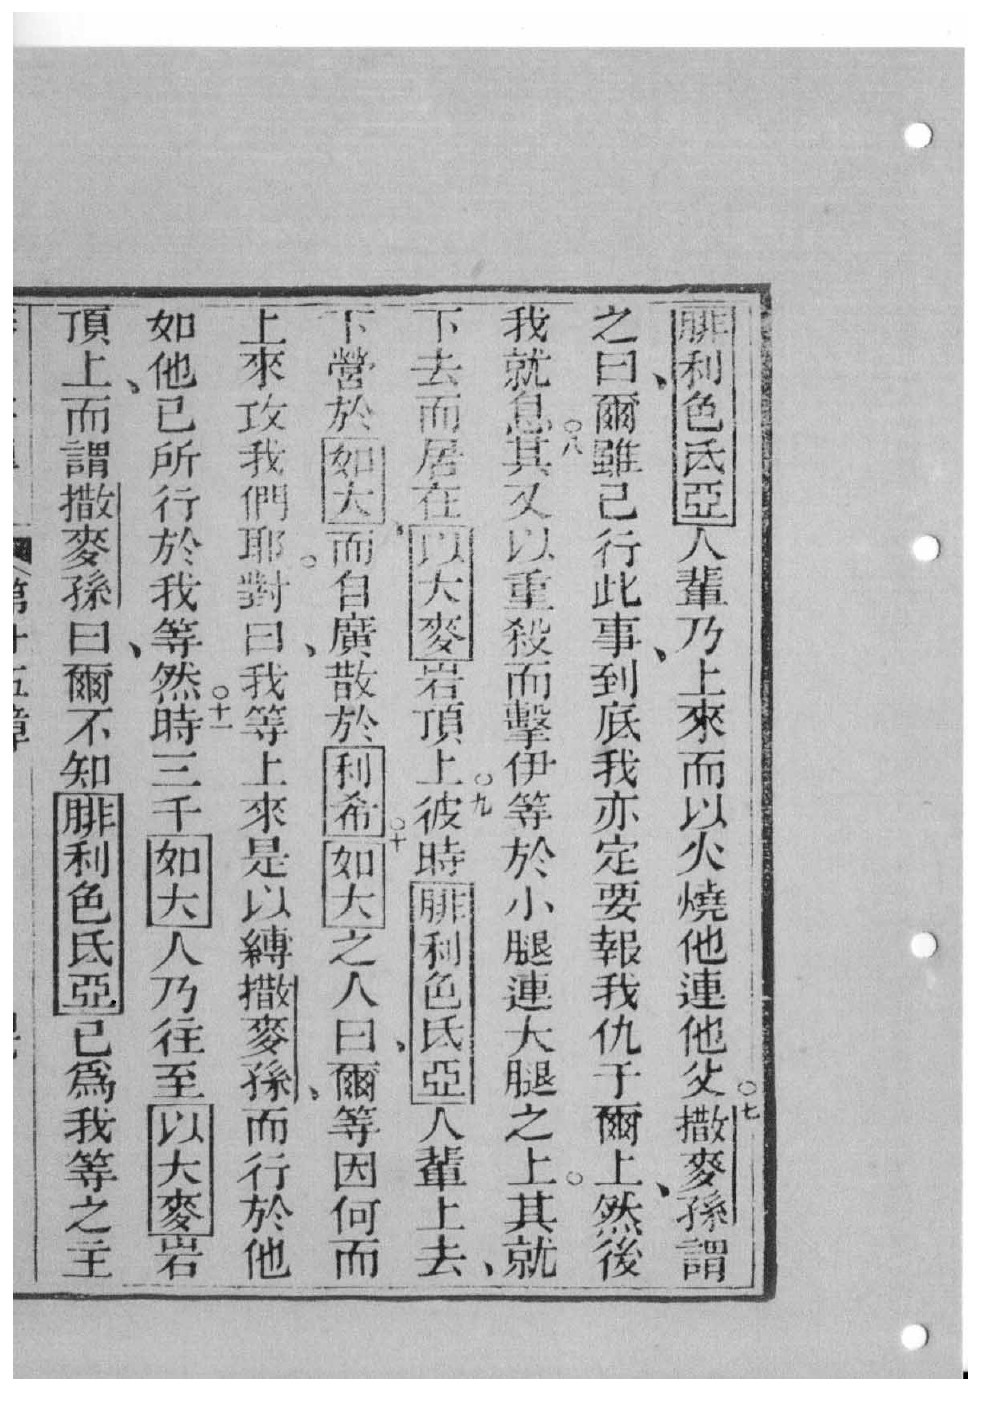 腓利色氐亞人輩乃上來而以火燒他連他父○七撒麥孫謂
之曰、爾雖已行此事、到底我亦定要報我仇于爾上、然後
我就息○八其又以重殺而擊伊等於小腿連大腿之上。其就
下去而居在以大麥岩頂上○九彼時腓利色氐亞人輩上去、
下營於如大、而自廣散於利希○十如大之人曰、爾等因何而
上來攻我們耶。對曰、我等上來是以縛撒麥孫、而行於他
如他已所行於我等然○十一時三千如大人乃往至以大麥岩
頂上、而謂撒麥孫曰、爾不知腓利色氐亞已為我等之主
第十五章